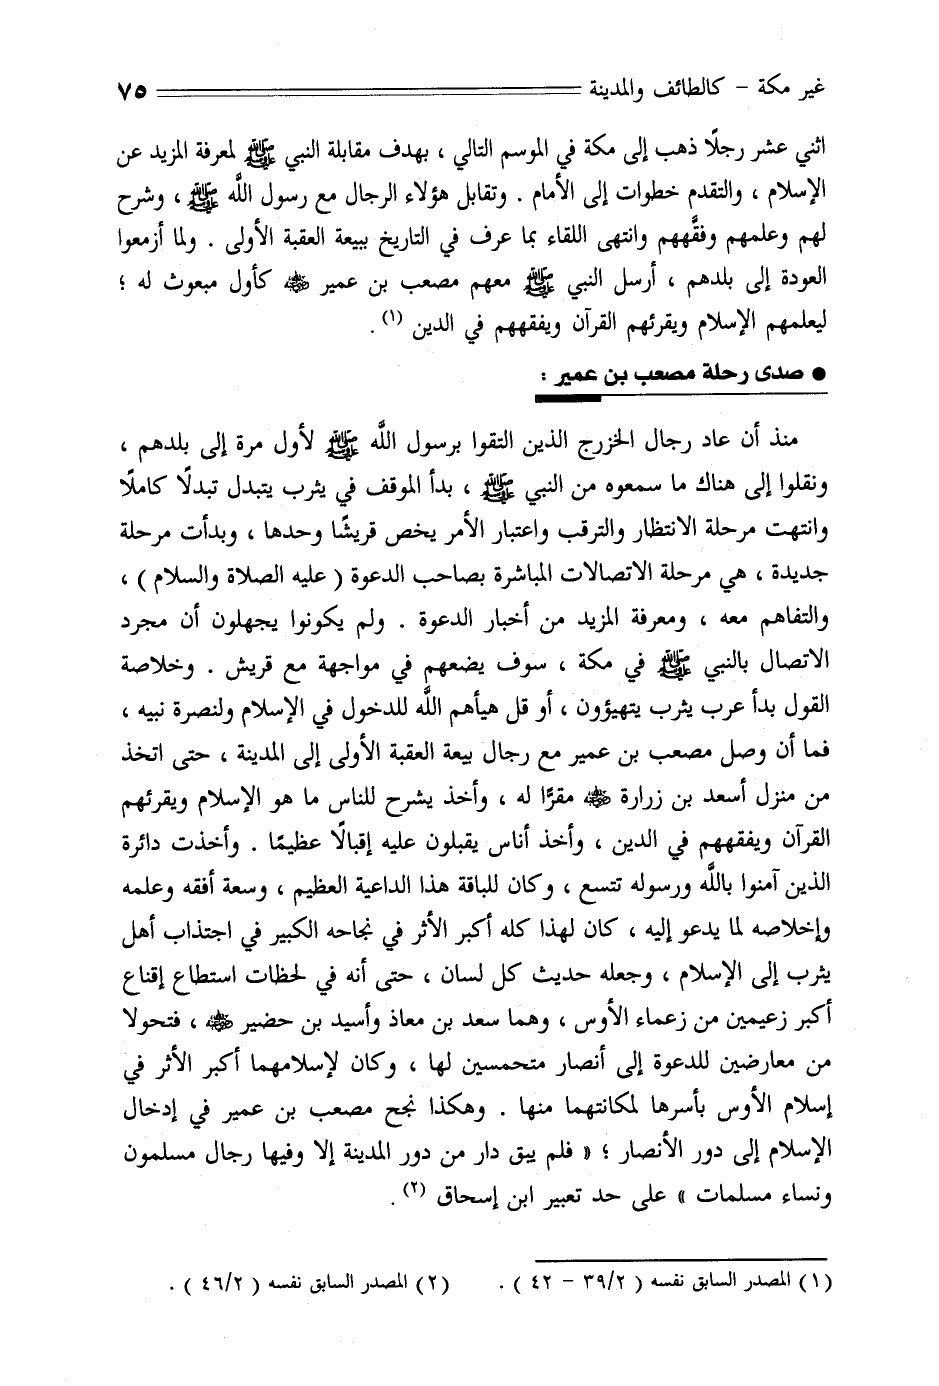 غير مكة - كالطائف والمدينة ٧٥
اثني عشر رجلًا ذهب إلى مكة في الموسم التالي ، بهدف مقابلة النبي ﷺ لمعرفة المزيد عن
الإسلام ، والتقدم خطوات إلى الأمام . وتقابل هؤلاء الرجال مع رسول اللَّه ﷺ ، وشرح
لهم وعلمهم وفقَّههم وانتهى اللقاء بما عرف في التاريخ ببيعة العقبة الأولى . ولما أزمعوا
العودة إلى بلدهم ، أرسل النبي ﷺ معهم مصعب بن عمير ﵁ كأول مبعوث له ؛
ليعلمهم الإسلام ويقرئهم القرآن ويفقههم في الدين (١) .
● صدى رحلة مصعب بن عمير :
منذ أن عاد رجال الخزرج الذين التقوا برسول اللَّه ﷺ لأول مرة إلى بلدهم ،
ونقلوا إلى هناك ما سمعوه من النبي ﷺ ، بدأ الموقف في يثرب يتبدل تبدلًا كاملًا
وانتهت مرحلة الانتظار والترقب واعتبار الأمر يخص قريشًا وحدها ، وبدأت مرحلة
جديدة ، هي مرحلة الاتصالات المباشرة بصاحب الدعوة ( عليه الصلاة والسلام ) ،
والتفاهم معه ، ومعرفة المزيد من أخبار الدعوة . ولم يكونوا يجهلون أن مجرد
الاتصال بالنبي ﷺ في مكة ، سوف يضعهم في مواجهة مع قريش . وخلاصة
القول بدأ عرب يثرب يتهيؤون ، أو قل هيأهم اللَّه للدخول في الإسلام ولنصرة نبيه ،
فما أن وصل مصعب بن عمير مع رجال بيعة العقبة الأولى إلى المدينة ، حتى اتخذ
من منزل أسعد بن زرارة ﵁ مقرًّا له ، وأخذ يشرح للناس ما هو الإسلام ويقرئهم
القرآن ويفقههم في الدين ، وأخذ أناس يقبلون عليه إقبالًا عظيمًا . وأخذت دائرة
الذين آمنوا باللَّه ورسوله تتسع ، وكان للباقة هذا الداعية العظيم ، وسعة أفقه وعلمه
وإخلاصه لما يدعو إليه ، كان لهذا كله أكبر الأثر في نجاحه الكبير في اجتذاب أهل
يثرب إلى الإسلام ، وجعله حديث كل لسان ، حتى أنه في لحظات استطاع إقناع
أكبر زعيمين من زعماء الأوس ، وهما سعد بن معاذ وأسيد بن حضير ﵄ ، فتحولا
من معارضين للدعوة إلى أنصار متحمسين لها ، وكان لإسلامهما أكبر الأثر في
إسلام الأوس بأسرها لمكانتهما منها . وهكذا نجح مصعب بن عمير في إدخال
الإسلام إلى دور الأنصار ؛ « فلم يبق دار من دور المدينة إلا وفيها رجال مسلمون
ونساء مسلمات » على حد تعبير ابن إسحاق (٢) .
(١) المصدر السابق نفسه ( ٣٩/٢ - ٤٢ ) . (٢) المصدر السابق نفسه ( ٤٦/٢ ) .